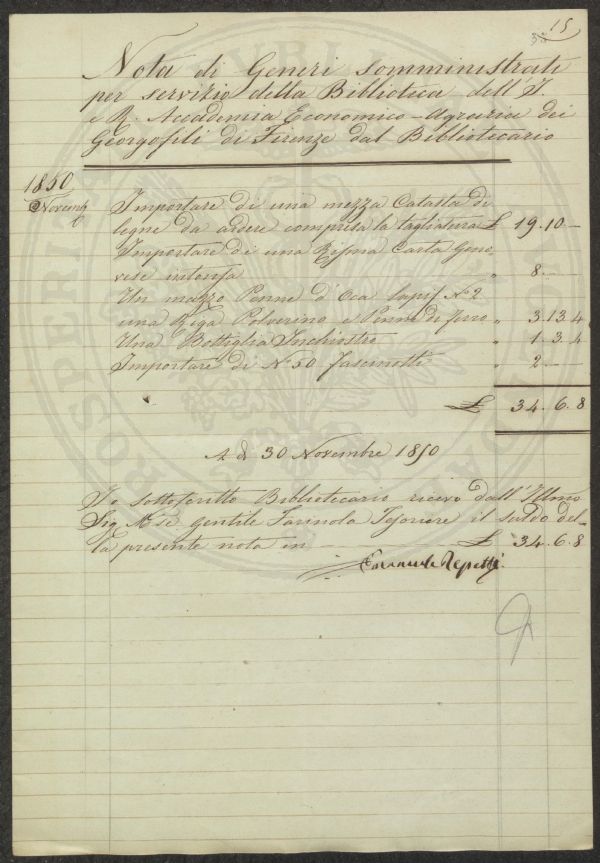 15
Nota di Generi somministrati
per servizio della Biblioteca dell'I.
e R. Accademia Economico-Agraria dei
Georgofili di Firenze dal Bibliotecario
1850
Importare di una mezza Catasta di
Novemb
legne da ardere compresa la tagliatura £ 19.10 —
Importare di una Risma Carta Geno
vese intonsa " 8. —
Un mazzo Penne d'Oca lapis N.2
una Riga Polverino e Penne di ferro " 3.13.4
Una Bottiglia Inchiostro " 1.3.4
Importare di N.o 50 fascinotti " 2. —
£ 34.6.8
A dì 30 Novembre 1850
Io sottoscritto Bibliotecario ricevo dall'Illmo
Sig. M.se Gentile Farinola Tesoriere il saldo del-
la presente nota in £ 34.6.8
Emanuele Repetti
PROSPERITÀ